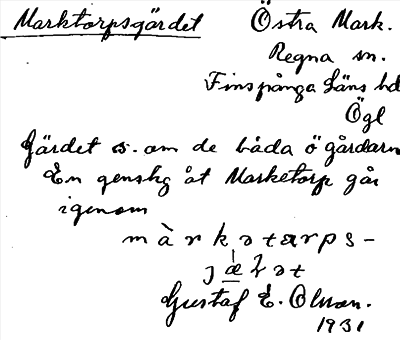 Marktorpsgärdet Östra Mark.
Regna sn.
Finspånga läns hd
Ögl
Gärdet s. om de båda ö gårdarn
En genstig åt Marketorp går
igenom
màrkɘtarps-
jæʅɘt
Gustaf E. Olsson.
1931